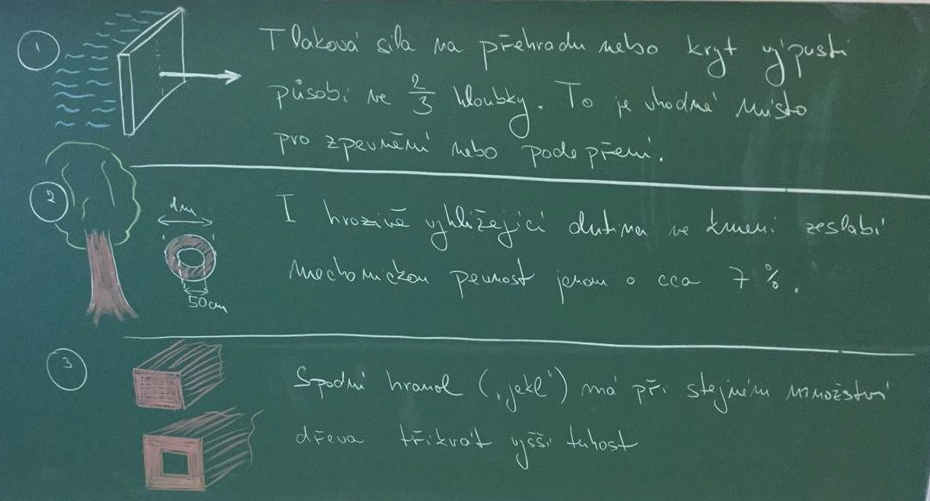 1
Tlaková síla na přehradu nebo kryt výpusti
působí ve 2/3 hloubky. To je vhodné místo
pro zpevnění nebo podepření.
2
dm
50cm
I hrozivě vyhlížející dutina ve kmeni zeslabí
mechanickou pevnost jenom o cca 7 %.
3
Spodní hranol („jekl“) má při stejném množství
dřeva třikrát vyšší tuhost